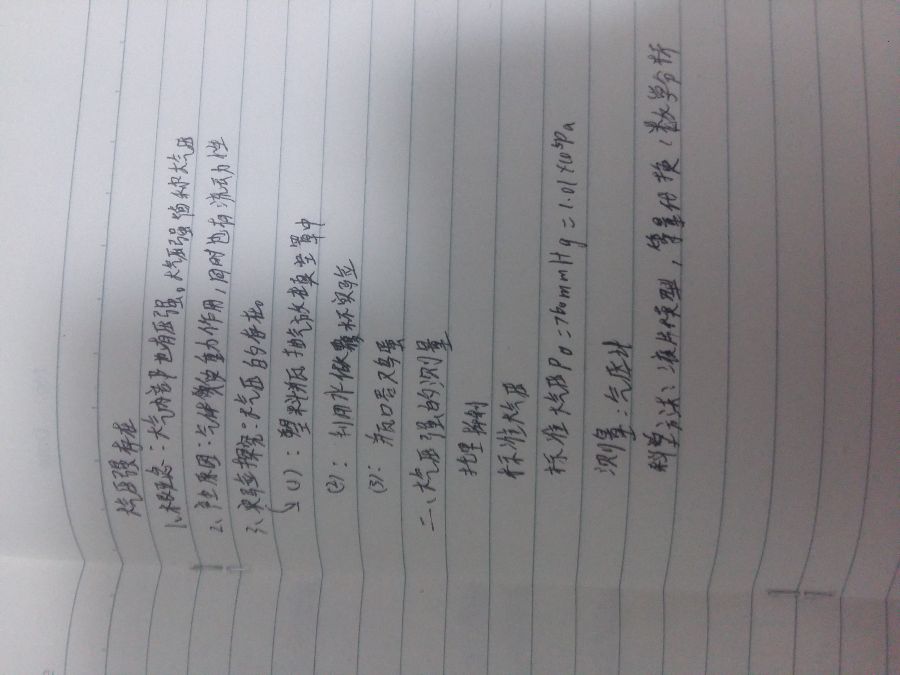 大气压强存在
1、概念：大气内部也有压强。大气压强简称大气压
2、产生原因：气体受重力作用，同时也有流动性
3、实验探究：大气压的存在。
(1)：塑料瓶抽气放在真空罩中
(2)：利用水做覆杯实验
(3)：瓶口吞鸟蛋
二、大气压强的测量
托里拆利
标准大气压
标准大气压P0=760mmHg=1.01×10⁵Pa
测量：气压计
科学方法：液片模型，等量代换，数学分析